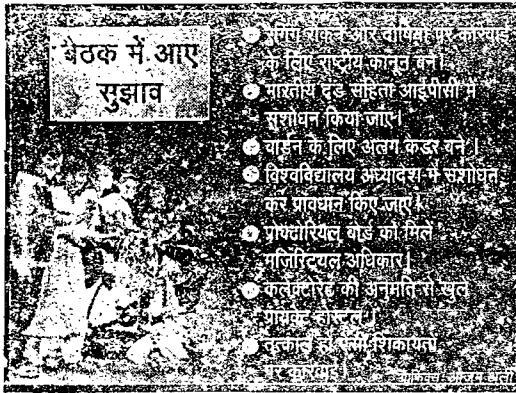 बैठक में आए
सुझाव
रैगिंग रोकने और दोषियों पर कार्रवाई
के लिए राष्ट्रीय कानून बने।
भारतीय दंड संहिता आईपीसी में
संशोधन किया जाए।
वार्डन के लिए अलग कैडर बने।
विश्वविद्यालय अध्यादेश में संशोधन
कर प्रावधान किए जाए।
प्राक्टोरियल बोर्ड को मिले
मजिस्ट्रियल अधिकार।
कलेक्टोरेट की अनुमति से खुले
प्रायवेट हास्टल।
तत्काल हो ऐसी शिकायतों
पर कार्रवाई।